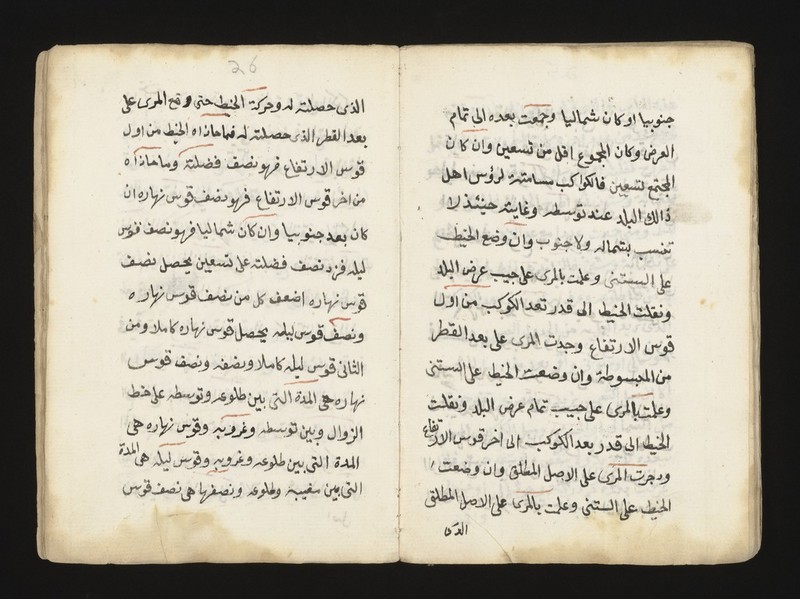 جنوبيا او كان شماليا وجمعت بعده الى تمام
العرض وكان المجموع اقل من تسعين وان كان
المجتمع تسعين فالكواكب مسامتة لرؤس اهل
ذالك البلد عند توسطه وغايته حينئذ لا
تنسب بشماله ولا جنوب وان وضع الخيط
على الستيني وعلمت بالمرى على جيب عرض البلد
ونقلت الخيط الى قدر بعد الكوكب من اول
قوس الارتفاع وجدت المرى على بعد القطر
من المبسوطة وان وضعت الخيط على الستيني
وعلمت بالمرى على جيب تمام عرض البلد ونقلت
الخيط الى قدر بعد الكوكب الى اخر قوس الارتفاع
وجدت المرى على الاصل المطلق وان وضعت
الخيط على الستيني وعلمت بالمرى على الاصل المطلق
الذى
26
الذى حصلته له وحركة الخيط حتى وقع المرى على
بعد القطر الذى حصلته له فما حاذاه الخيط من اول
قوس الارتفاع فهو نصف فضلته وما حاذاه
من اخر قوس الارتفاع فهو نصف قوس نهاره ان
كان بعد جنوبيا وان كان شماليا فهو نصف قوس
ليله فزد نصف فضلته على تسعين يحصل نصف
قوس نهاره اضعف كل من نصف قوس نهاره
ونصف قوس ليله يحصل قوس نهاره كاملا ومن
الثانى قوس ليله كاملا ونصفه ونصف قوس
نهاره هى المدة التى بين طلوعه وتوسطه على خط
الزوال وبين توسطه وغروبه وقوس نهاره هى
المدة التى بين طلوعه وغروبه وقوس ليله هى المدة
التى بين مغيبه وطلوعه ونصفها هى نصف قوس